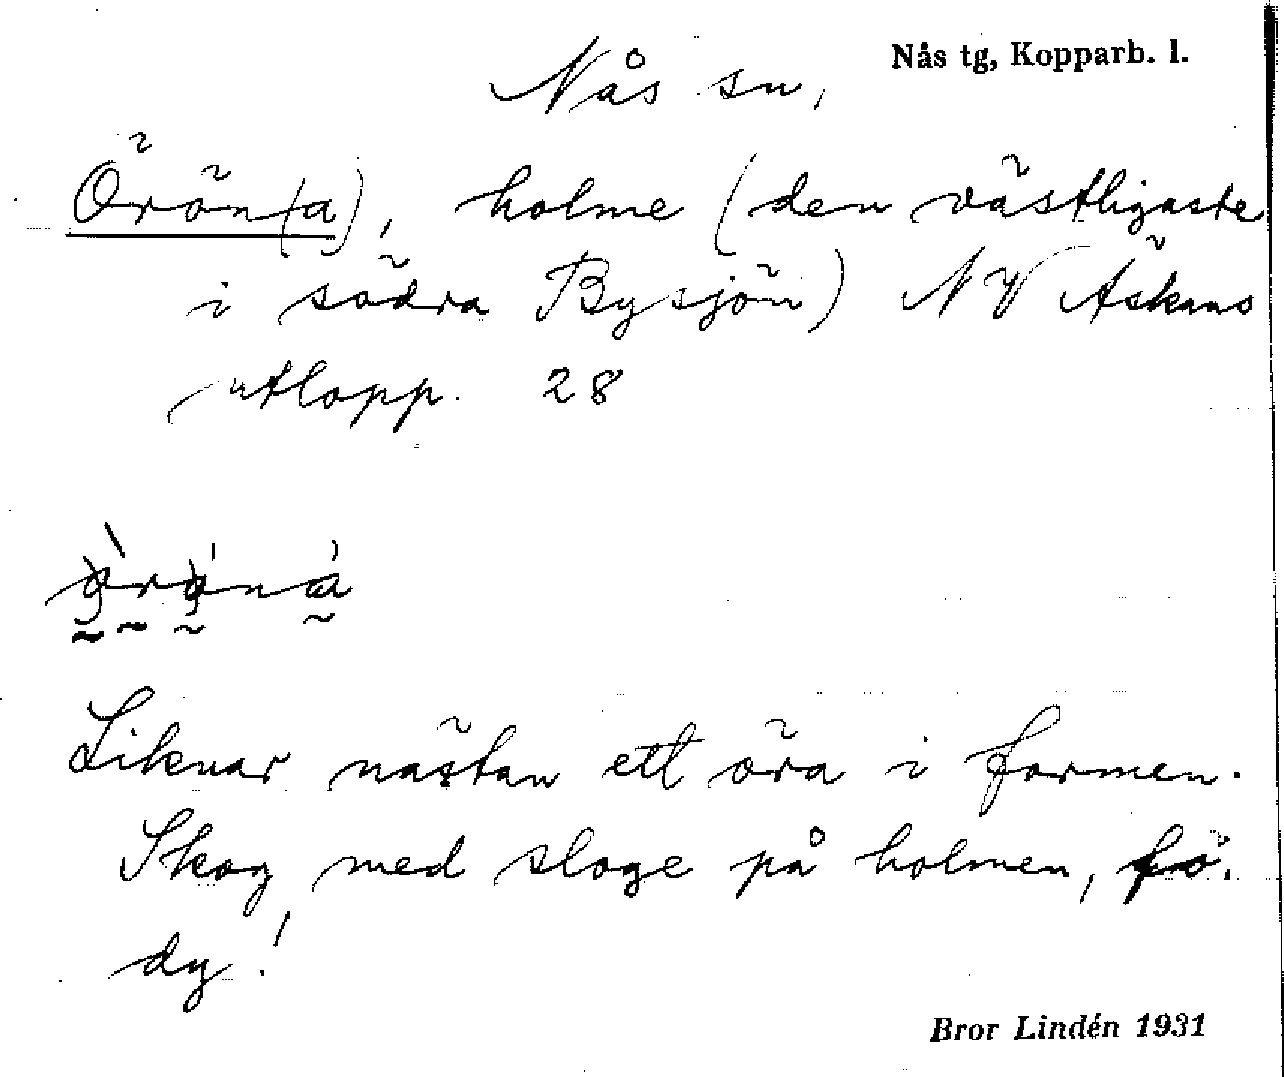 Nås tg, Kopparb. l.
Nås sn,
Örön(a), holme (den västligaste
i södra Bysjön) NV Äskans
utlopp. 28
Liknar nästan ett öra i formen.
Skog med sloge på holmen, fö.
dy!
Bror Lindén 1931